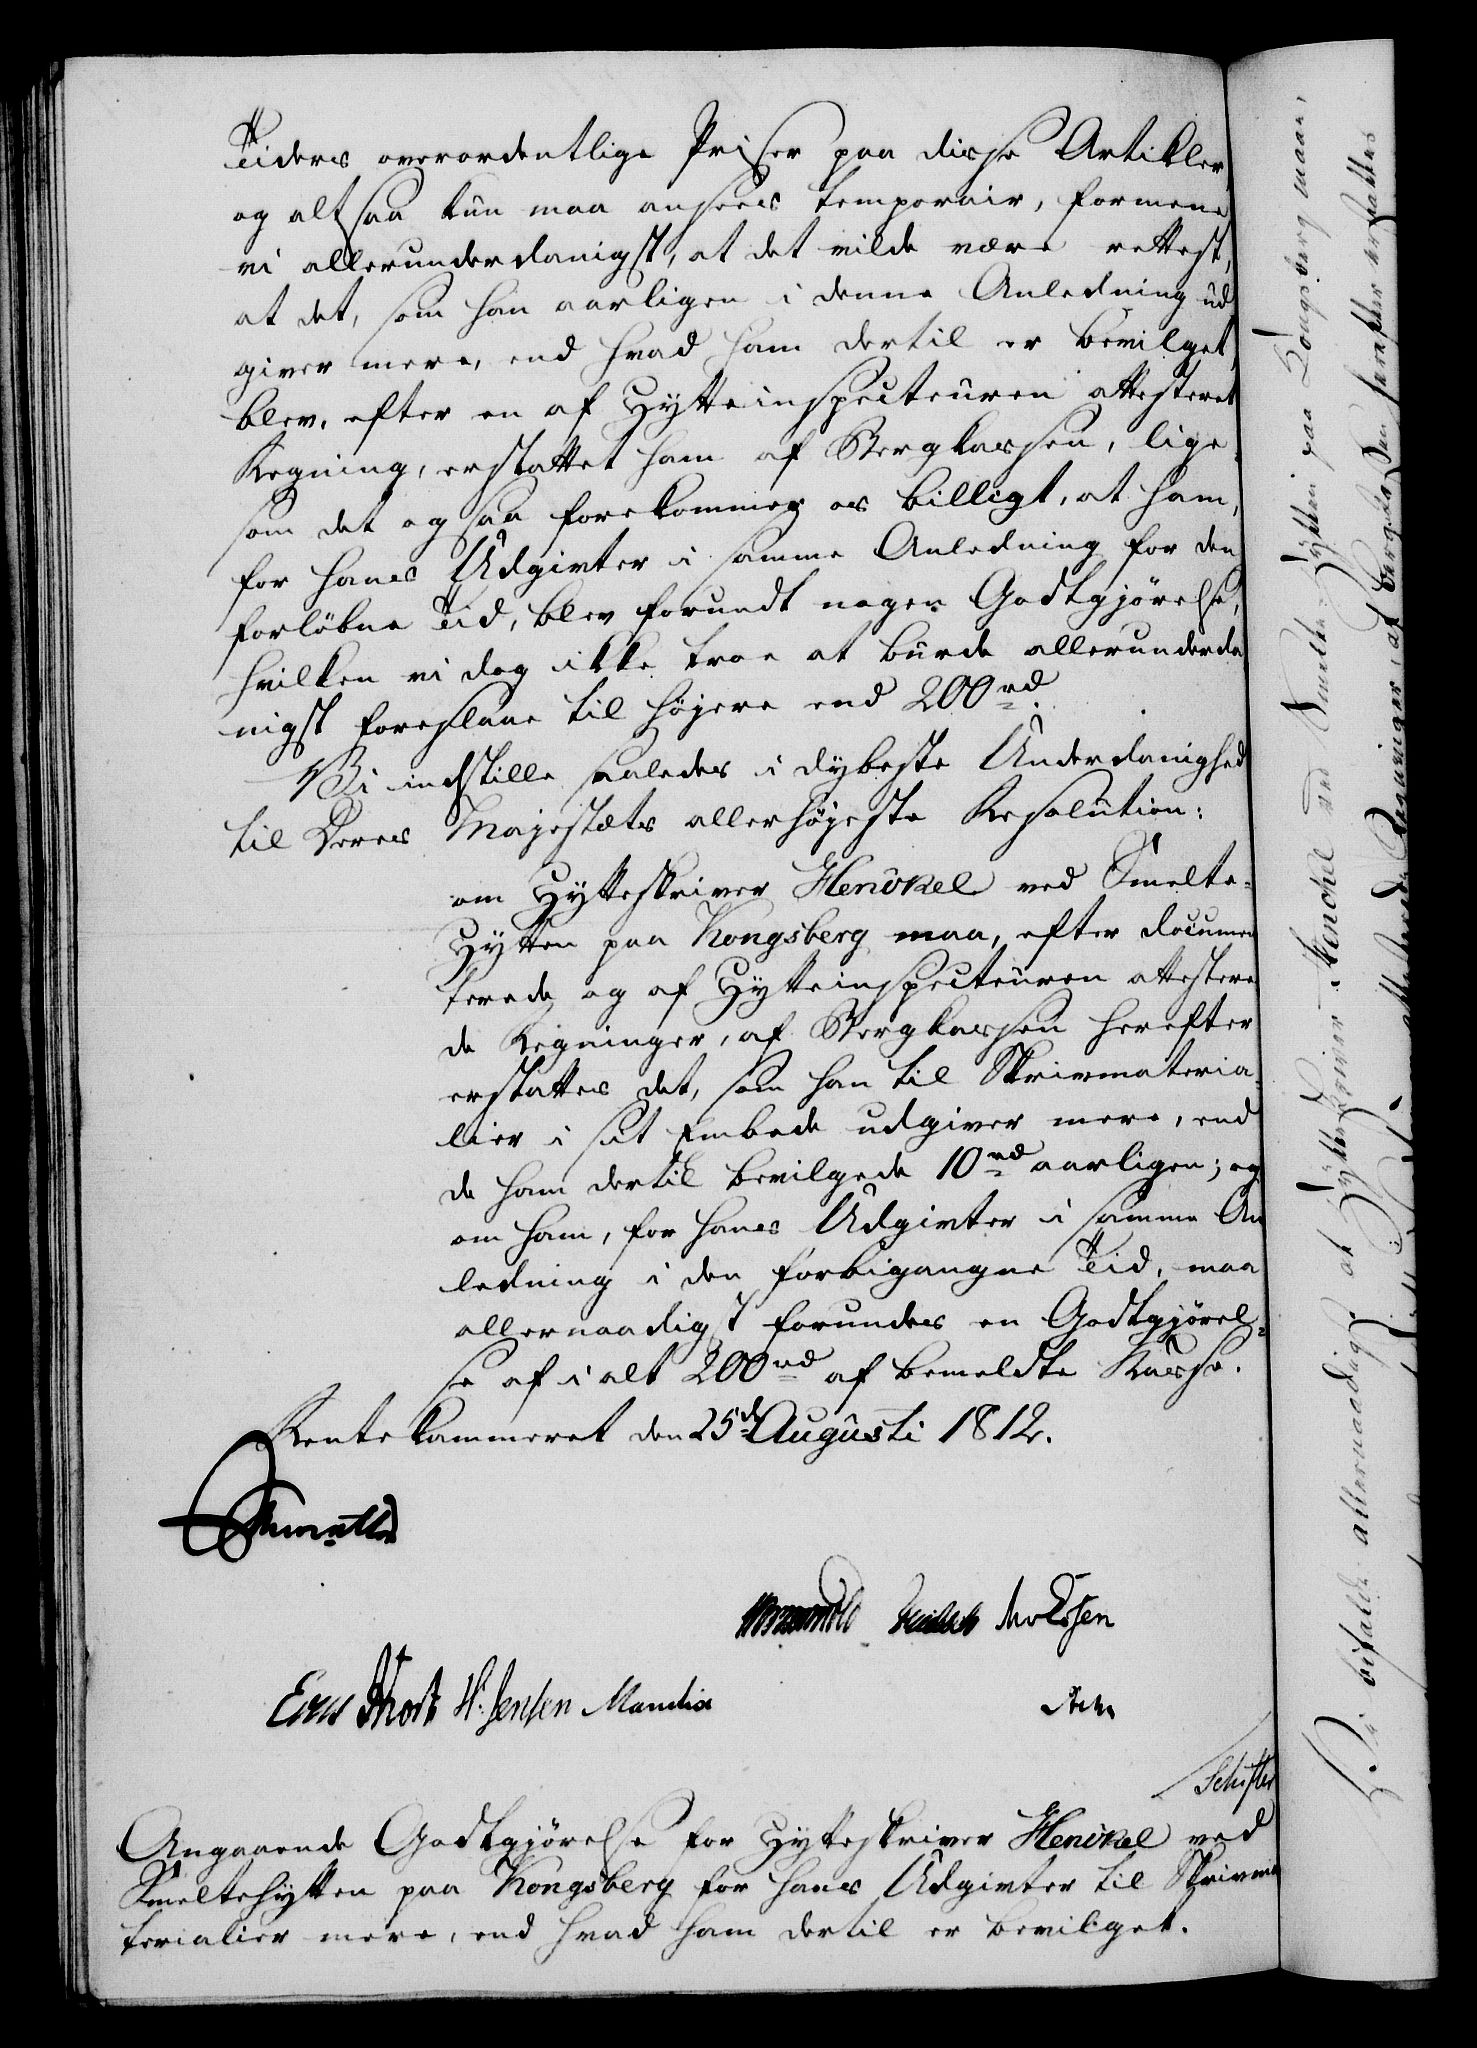 Tiders overordentlige Priser paa disse Artikler,
og altsaa kun maa ansees temporair, formene
vi allerunderdanigst, at det vilde være rettest,
at det, som han aarligen i denne Anledning ud
giver mere, end hvad ham dertil er bevilget,
blev, efter en af Hytteinspecteuren attesteret
Regning, erstattet ham af Bergkassen, lige-
som det ogsaa forekommer os billigt, at ham,
for hans Udgivter i samme Anledning for den
forløbne Tid, blev forundt nogen Godtgjørelse,
hvilken vi dog ikke troe at burde allerunderda
nigst foreslaae til højere end 200 rd.
Vi indstille saaledes i dybeste Underdanighed
til Deres Majestæts allerhøjeste Resolution:
om Hytteskriver Henckel ved Smelte-
Hytten paa Kongsberg maa, efter documen
terede og af Hytteinspecteuren attestere
de Regninger, af Bergkassen herefter
erstattes det, som han til Skrivmateria-
lier i sit Embede udgiver mere, end
de ham dertil bevilgede 10 rd aarligen; og
om ham, for hans Udgivter i samme An
ledning i den forbigangne Tid, maa
allernaadigst forundes en Godtgjørel-
se af i alt 200 rd af bemeldte Kasse.
Rentekammeret den 25de Augusti 1812.
Knuth Monrad
Erns Thort H. Jensen Manthey
Schifter
Angaaende Godtgjørelse for Hytteskriver Henckel ved
Smeltehytten paa Kongsberg for hans Udgivter til Skrivma
terialier mere, end hvad ham dertil er bevilget.
Vi bifalde allernaadigst at Hytteskriver Henckel ved Smelte-Hytten paa Kongsberg maa,
Regninger, af Bergkassen herefter erstattes